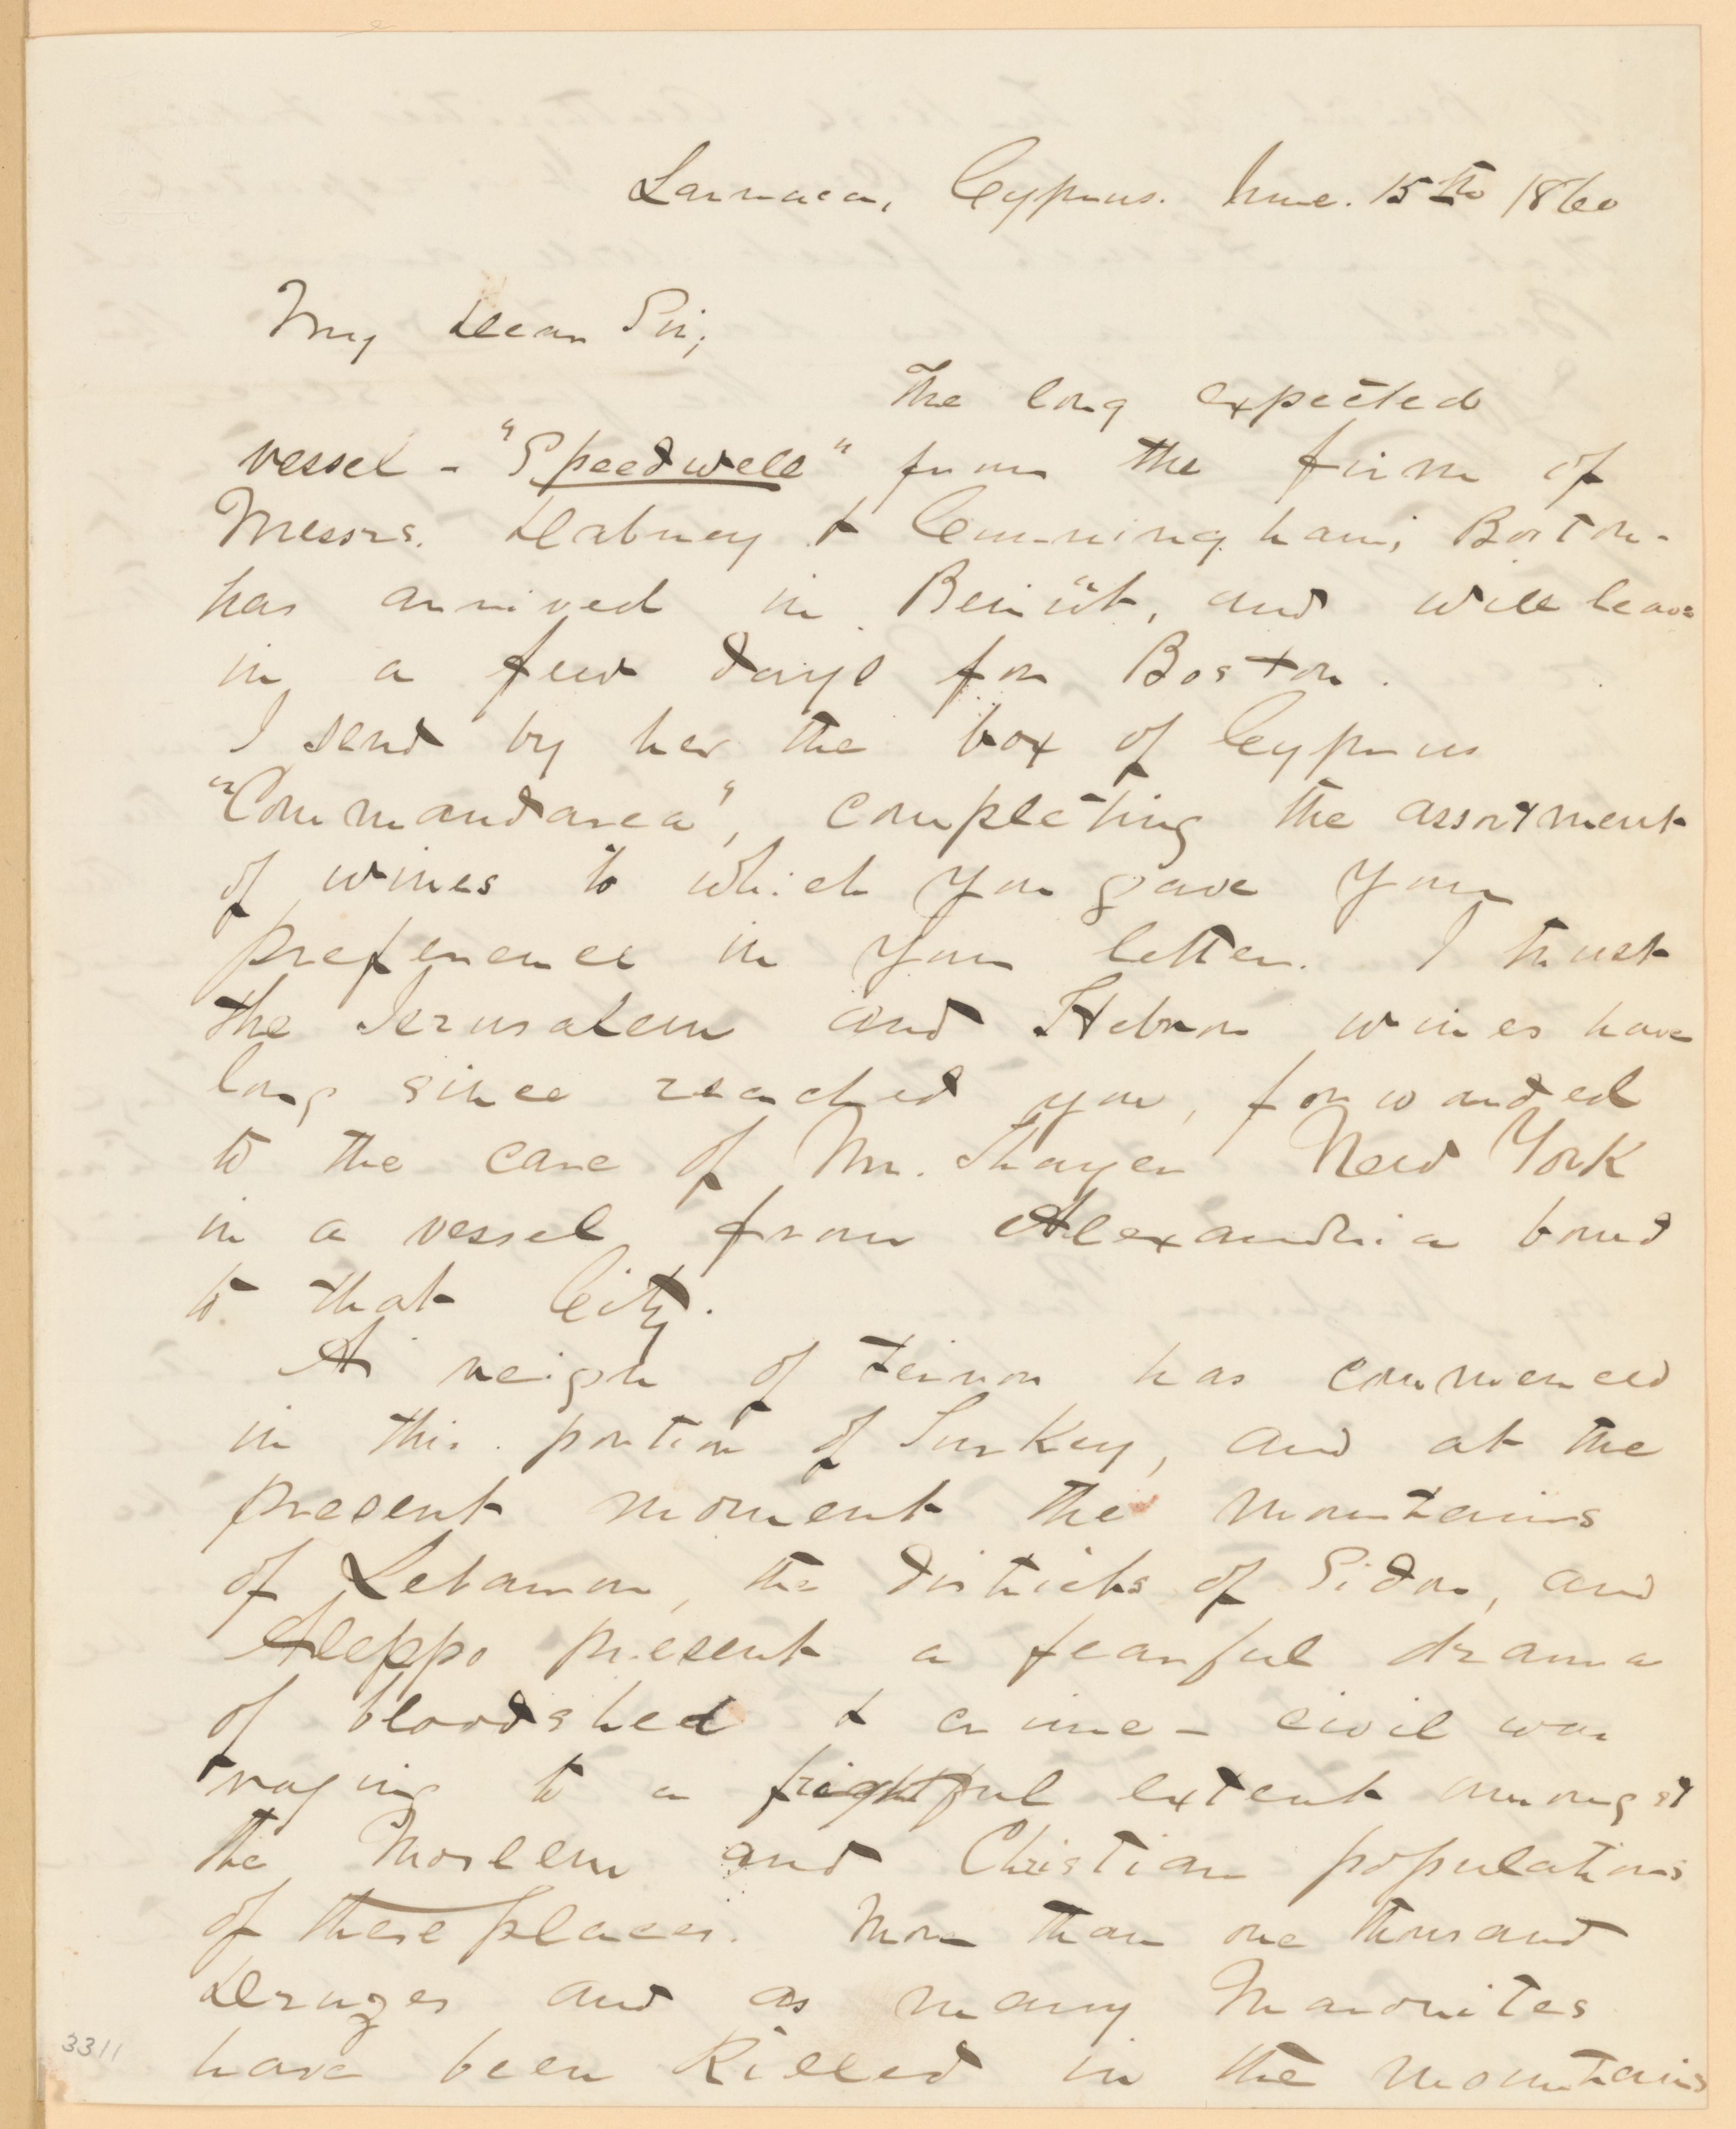 Larnaca, Cyprus. June. 15th 1860
My Dear Sir;
The long expected
vessel - "Speedwell" from the firm of
Messrs. Dabney & Cunningham, Boston -
has arrived in Beirût, and will leave
in a few days for Boston.
I send by her the box of Cyprus
"Commandarea", completing the assortment
of wines to which you gave your
preference in your letter. I trust
the Jerusalem and Hebron wines have
long since reached you, forwarded
to the care of Mr. Thayer New York
in a vessel from Alexandria bound
to that City.
A reign of terror has commenced
in this portion of Turkey, and at the
present moment the mountains
of Lebanon, the districts of Sidon, and
Aleppo present a fearful drama
of bloodshed & crime - civil war
raging to a frightful extent amongst
the Moslem and Christian populations
of these places. More than one thousand
Druzes and as many Maronites
have been killed in the mountains
3311